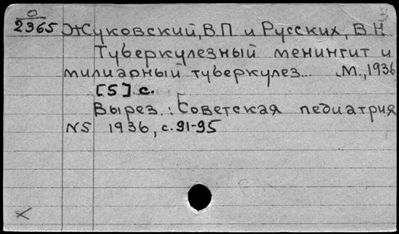 О
2365 Жуковский, В.П. и Русских, В.Н.
Туберкулезный менингит и
милиарный туберкулез... М., 1936
[5] с.
Вырез.: Советская педиатрия
N5 1936, с. 91-95